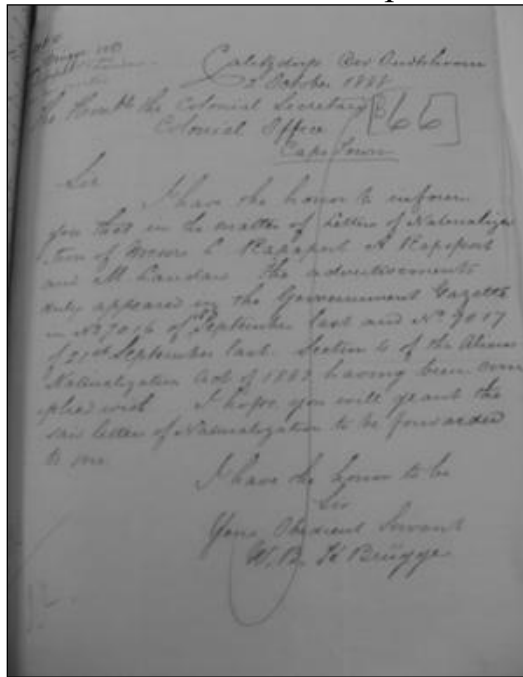 Calitzdorp Div Oudtshoorn
2 October 1888
The Honble the Colonial Secretary
Colonial Office
Cape Town
66
Sir
I have the honor to inform
you that in the matter of Letters of Naturaliza
tion of Messrs C. Rapaport A Rapaport
and M Landau the advertisements
duly appeared in the Government Gazette
in No 7016 of September last and No 7017
of 21st September last. Section 4 of the Aliens
Naturalization Act of 1883 having been com
plied with I hope you will grant the
said letter of Naturalization to be forwarded
to me
I have the honor to be
Sir
Your Obedient Servant
W. B. Te Brügge